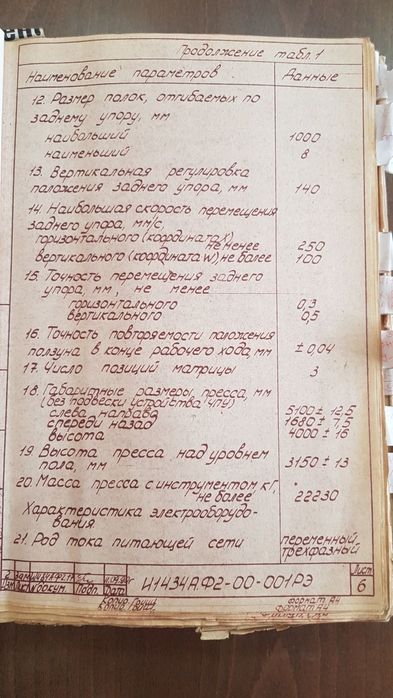 Продолжение табл.1
Наименование параметров Данные
12. Размер полок, отгибаемых по
заднему упору, мм
наибольший 1000
наименьший 8
13. Вертикальная регулировка
положения заднего упора, мм 140
14. Наибольшая скорость перемещения
заднего упора, мм/с,
горизонтального (координата X)
не менее 250
вертикального (координата W), не более 100
15. Точность перемещения заднего
упора, мм, не менее
горизонтального 0,3
вертикального 0,5
16. Точность повторяемости положения
ползуна в конце рабочего хода, мм ± 0,04
17. Число позиций матрицы 3
18. Габаритные размеры пресса, мм
(без подвески устройства ЧПУ)
слева направо 5100 ± 12,5
спереди назад 1680 ± 7,5
высота 4000 ± 16
19. Высота пресса над уровнем
пола, мм 3150 ± 13
20. Масса пресса с инструментом, кг,
не более 22230
Характеристика электрооборудо-
вания
21. Род тока питающей сети переменный,
трехфазный
И1434А.Ф2-00-001РЭ Лист
6
Изм Лист № докум. Подп. Дата
Формат А4